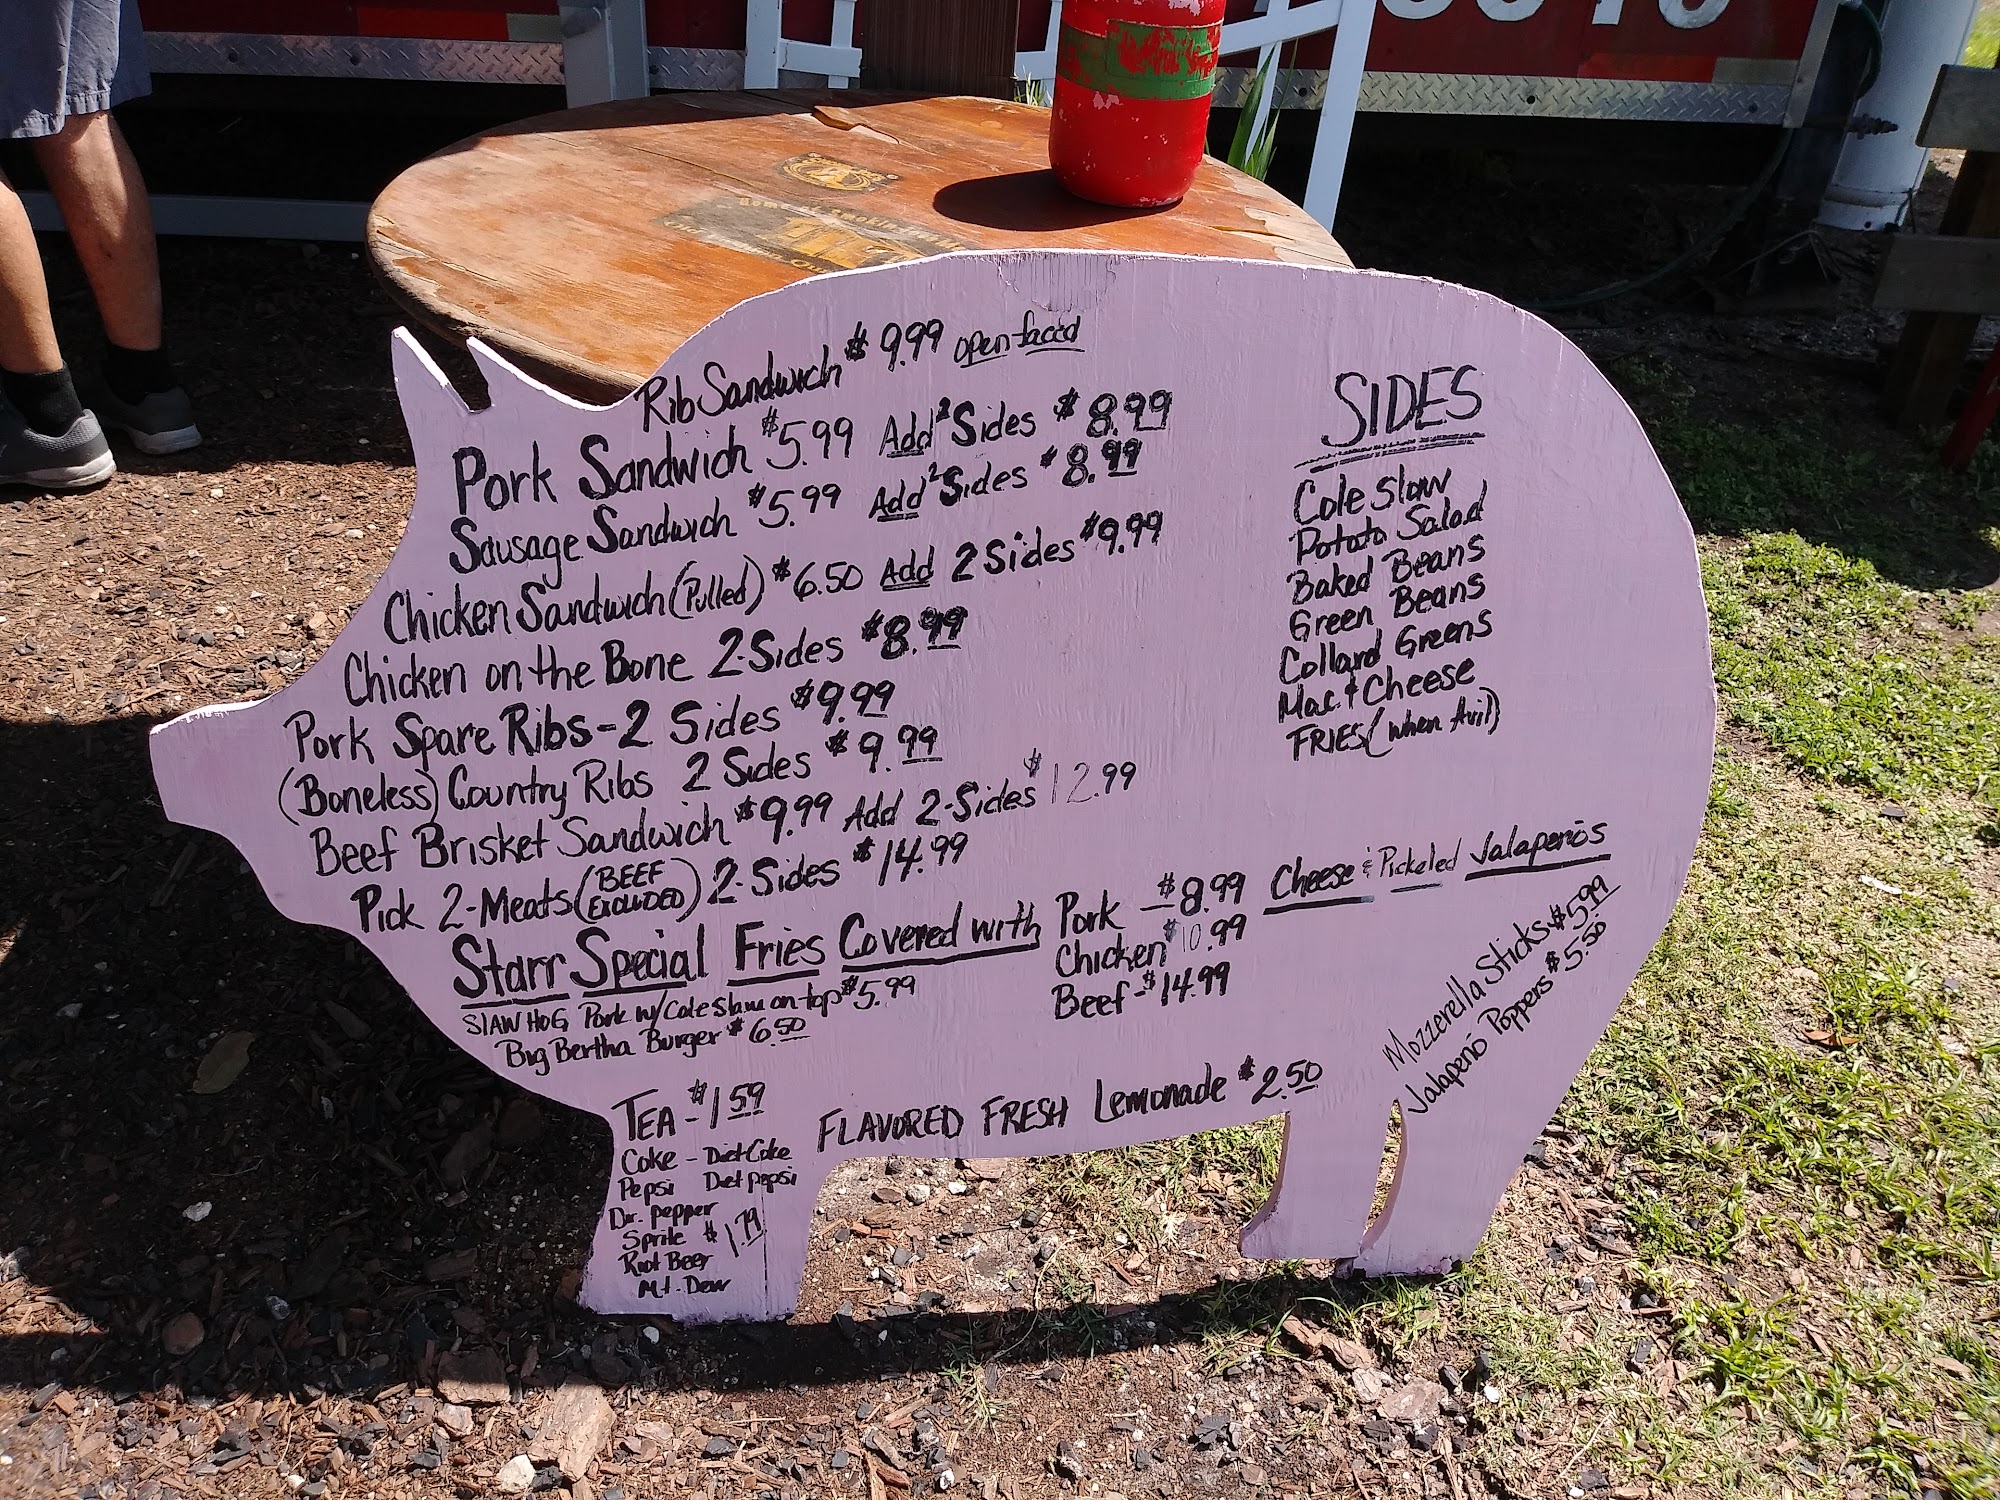 Rib Sandwich $9.99 open-faced
Pork Sandwich $5.99 Add 2 Sides $8.99
Sausage Sandwich $5.99 Add 2 Sides $8.99
Chicken Sandwich (Pulled) $6.50 Add 2 Sides $9.99
Chicken on the Bone 2-Sides $8.99
Pork Spare Ribs-2 Sides $9.99
(Boneless) Country Ribs 2 Sides $9.99
Beef Brisket Sandwich $9.99 Add 2-Sides $12.99
Pick 2-Meats (BEEF EXCLUDED) 2-Sides $14.99
Starr Special Fries Covered with
Pork - $8.99 Cheese & Pickeled Jalapeños
Chicken $10.99
Beef - $14.99
SlAW HOG Pork w/Coleslaw on-top $5.99
Big Bertha Burger $6.50
SIDES
Cole slaw
Potato Salad
Baked Beans
Green Beans
Collard Greens
Mac & Cheese
FRIES (when Avil)
Mozzerella Sticks $5.99
Jalapeño Poppers $5.50
FLAVORED FRESH Lemonade $2.50
TEA - $1.59
Coke - Diet Coke
Pepsi Diet pepsi
Dr. pepper
Sprite $1.79
Root Beer
Mt. Dew